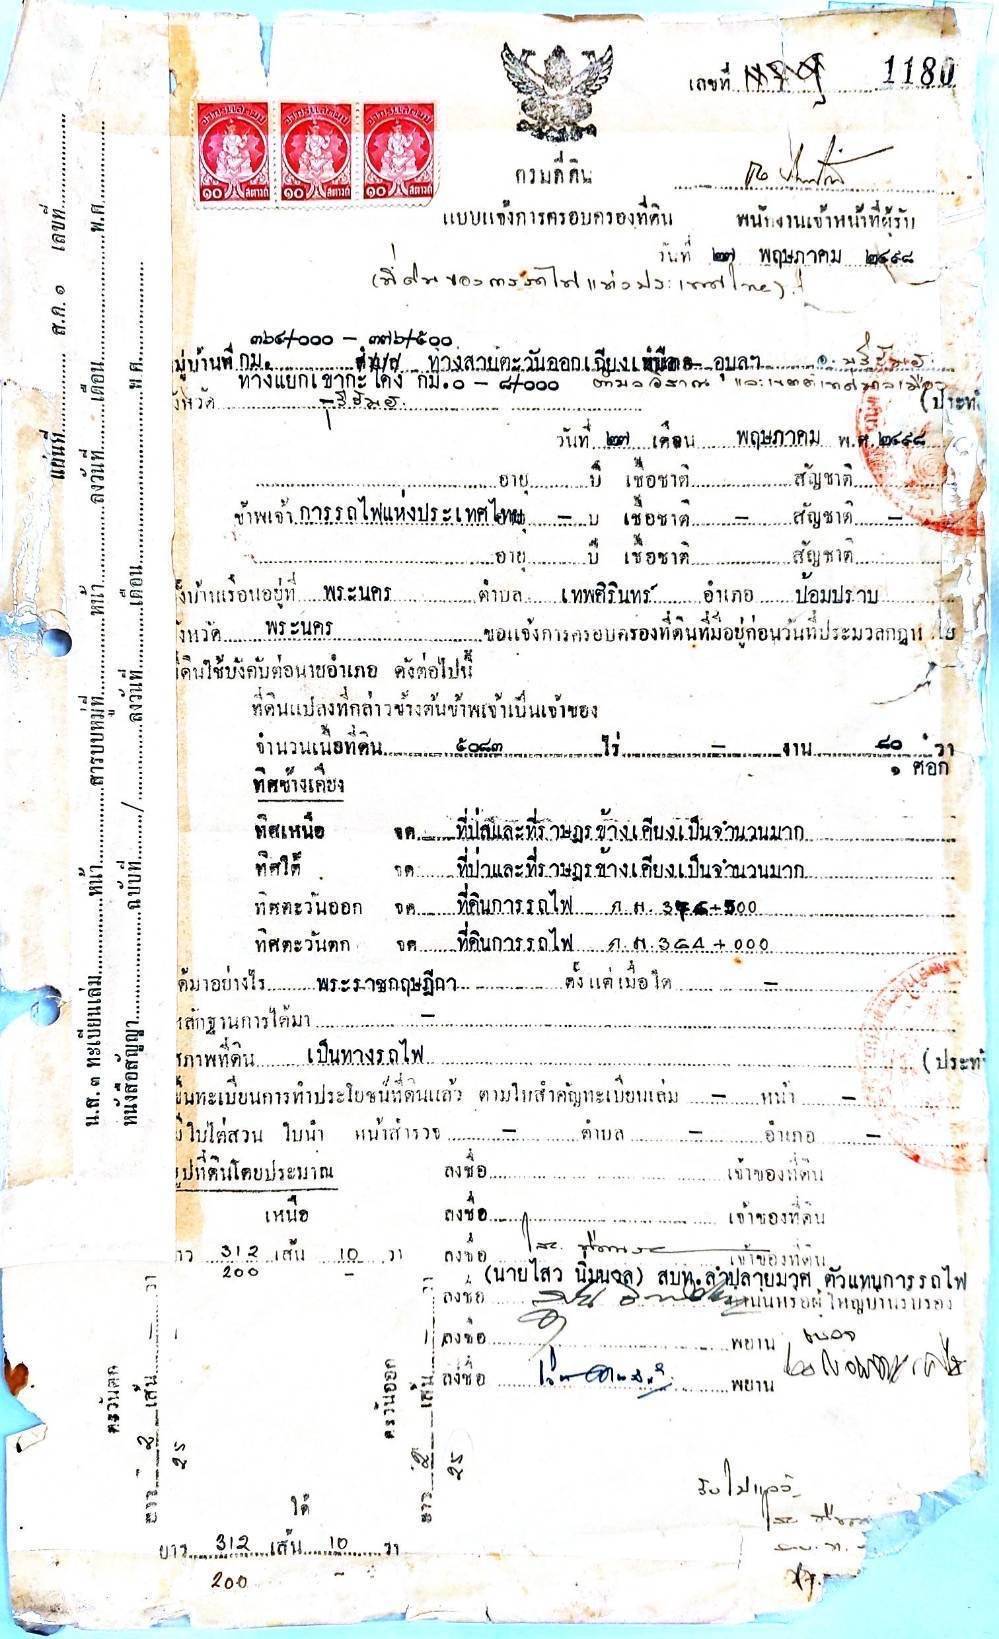 เลขที่ 1180
อากรแสตมป์ อากรแสตมป์ อากรแสตมป์
๑๐ สตางค์ ๑๐ สตางค์ ๑๐ สตางค์
กรมที่ดิน
แบบแจ้งการครอบครองที่ดิน พนักงานเจ้าหน้าที่ผู้รับ
วันที่ ๒๗ พฤษภาคม ๒๔๙๘
(ที่ดินของการรถไฟแห่งประเทศไทย)
แผ่นที่ ส.ค. ๑ เลขที่
น.ส. ๓ ทะเบียนเล่ม หน้า สารบบหมู่ที่ หน้า ลงวันที่ เดือน พ.ศ.
หนังสือสัญญา ฉบับที่ / ลงวันที่ เดือน พ.ศ.
๓๖๔/๐๐๐ – ๓๗๖/๕๐๐
มู่บ้านที่ กม. ทางสายตะวันออกเฉียงเหนือ อุบลฯ อ. บุรีรัมย์
ทางแยกเขากะโดง กม.๐ – ๘/๐๐๐ ตำบลอิสาณ และเขตต์เทศบาลเมือง
ังหวัด บุรีรัมย์ (ประทั
วันที่ ๒๗ เดือน พฤษภาคม พ.ศ. ๒๔๙๘
อายุ ปี เชื้อชาติ สัญชาติ
ข้าพเจ้า การรถไฟแห่งประเทศไทย – ป เชื้อชาติ – สัญชาติ –
อายุ ปี เชื้อชาติ สัญชาติ
ั้งบ้านเรือนอยู่ที่ พระนคร ตำบล เทพศิรินทร์ อำเภอ ป้อมปราบ
ังหวัด พระนคร ขอแจ้งการครอบครองที่ดินที่มีอยู่ก่อนวันที่ประมวลกฎห
ที่ดินใช้บังคับต่อนายอำเภอ ดังต่อไปนี้
ที่ดินแปลงที่กล่าวข้างต้นข้าพเจ้าเป็นเจ้าของ
จำนวนเนื้อที่ดิน ๕๐๘๓ ไร่ – งาน ๘๐ วา
๑ ศอก
ทิศข้างเคียง
ทิศเหนือ จด ที่ป่าและที่ราษฎรข้างเคียงเป็นจำนวนมาก
ทิศใต้ จด ที่ป่าและที่ราษฎรข้างเคียงเป็นจำนวนมาก
ทิศตะวันออก จด ที่ดินการรถไฟ ก.ม. 376+500
ทิศตะวันตก จด ที่ดินการรถไฟ ก.ม. 364+000
ได้มาอย่างไร พระราชกฤษฎีกา ตั้งแต่เมื่อใด –
หลักฐานการได้มา –
สภาพที่ดิน เป็นทางรถไฟ (ประทั
ขึ้นทะเบียนการทำประโยชน์ที่ดินแล้ว ตามใบสำคัญทะเบียนเล่ม – หน้า –
มีใบไต่สวน ใบนำ หน้าสำรวจ – ตำบล – อำเภอ –
รูปที่ดินโดยประมาณ ลงชื่อ เจ้าของที่ดิน
เหนือ ลงชื่อ เจ้าของที่ดิน
ยาว 312 เส้น 10 วา ลงชื่อ เจ้าของที่ดิน
200 –
(นายไสว นิ่มนวล) สบท.ลำปลายมาศ ตัวแทนการรถไฟ
ลงชื่อ กำนันหรือผู้ใหญ่บ้านรับรอง
ลงชื่อ พยาน
ลงชื่อ พยาน
ตะวันตก
ยาว 2 เส้น – วา
25
ตะวันออก
ยาว 2 เส้น – วา
25
รับไปแล้ว
ใต้
ยาว 312 เส้น 10 วา
200 –